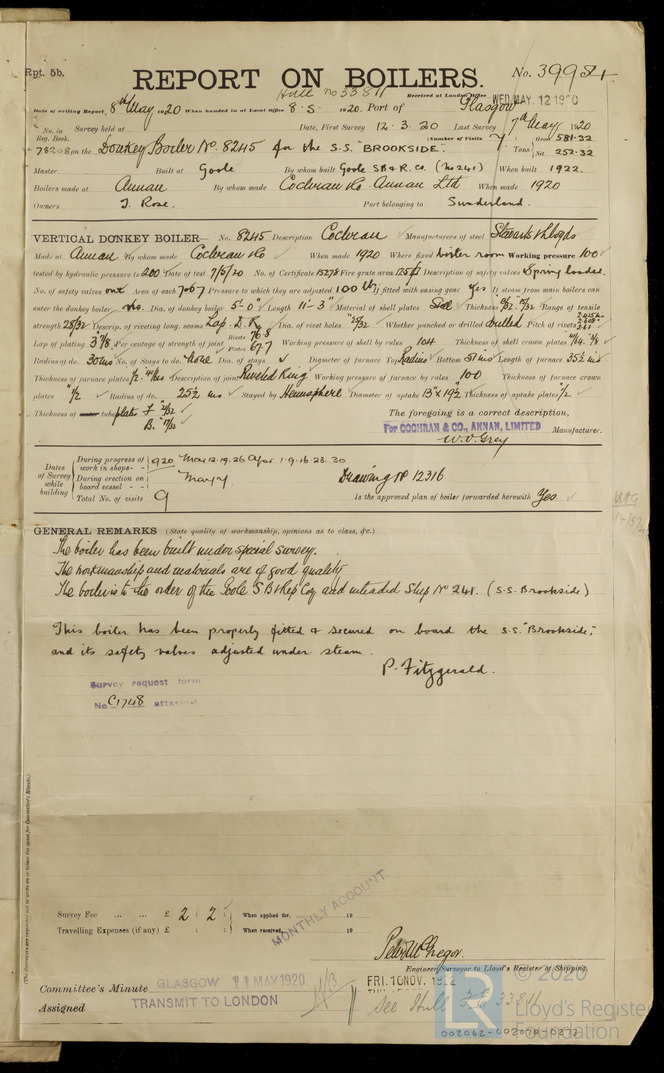 Rpt. 5b.
REPORT ON BOILERS.
No. 39954
Hull No 33811
Received at London Office WED. MAY. 12 1920
Date of writing Report 8th May 1920 When handed in at Local Office 8.5. 1920. Port of Glasgow
No. in Reg. Book. Survey held at Date, First Survey 12.3.20 Last Survey 7th May 1920
78208 on the Donkey Boiler No. 8245 for the S.S. "BROOKSIDE". (Number of Visits 7) Tons Gross 581.32 Net 252.32
Master Built at Goole By whom built Goole S.B. & R. Co. (No 241) When built 1922.
Boilers made at Annan By whom made Cochran & Co. Annan Ltd When made 1920
Owners T. Rose. Port belonging to Sunderland.
VERTICAL DONKEY BOILER— No. 8245 Description Cochran Manufacturers of steel Stewarts & Lloyds
Made at Annan By whom made Cochran & Co When made 1920 Where fixed boiler room Working pressure 100
tested by hydraulic pressure to 200 Date of test 7/5/20 No. of Certificate 15278 Fire grate area Description of safety valves Spring loaded.
No. of safety valves one Area of each 7.067 Pressure to which they are adjusted 100 lb If fitted with easing gear yes If steam from main boilers can
enter the donkey boiler no. Dia. of donkey boiler 5'-0" Length 11'-3" Material of shell plates Steel Thickness Range of tensile
strength 28/32 Descrip. of riveting long. seams Lap. D.R. Dia. of rivet holes 25/32 Whether punched or drilled drilled Pitch of rivets
Lap of plating Per centage of strength of joint Rivets 76.8 Plates 67.7 Working pressure of shell by rules 104 Thickness of shell crown plates
Radius of do. 30 ins No. of Stays to do. none Dia. of stays Diameter of furnace Top Radius Bottom 51 ins Length of furnace 35½ ins
Thickness of furnace plates Description of joint Riveted Ring Working pressure of furnace by rules 100 Thickness of furnace crown
plates Radius of do. 25½ ins Stayed by Hemisphere Diameter of uptake 13" x 19½ Thickness of uptake plates ½
Thickness of tube plates F 21/32 B. 17/32
The foregoing is a correct description,
For COCHRAN & CO., ANNAN, LIMITED Manufacturer.
W. O. Gray
Dates of Survey while building
During progress of work in shops - - 1920 Mar 12.19.26 Apr 1.9.16.23.30
During erection on board vessel - - - May 7.
Total No. of visits 9
Drawing No 12316
Is the approved plan of boiler forwarded herewith Yes.
GENERAL REMARKS (State quality of workmanship, opinions as to class, &c.)
The boiler has been built under special survey.
The workmanship and materials are of good quality
The boiler is to the order of the Goole S B & Rep Coy and intended Ship No 241. (S.S. Brookside)
This boiler has been properly fitted & secured on board the s.s. "Brookside",
and its safety valves adjusted under steam.
P. Fitzgerald.
Survey request form
No. C1748 attached
(The Surveyors are requested not to write on or below the space for Committee's Minute.)
Survey Fee ... ... £ 2 : 2 : When applied for, 19
Travelling Expenses (if any) £ : : When received, 19
MONTHLY ACCOUNT
Peter McGregor.
Engineer Surveyor to Lloyd's Register of Shipping.
Committee's Minute GLASGOW 11 MAY 1920
FRI. 10 NOV. 1922
Assigned TRANSMIT TO LONDON
See Hull 33811
© 2020
Lloyd's Register
Foundation
002062-002070-0277